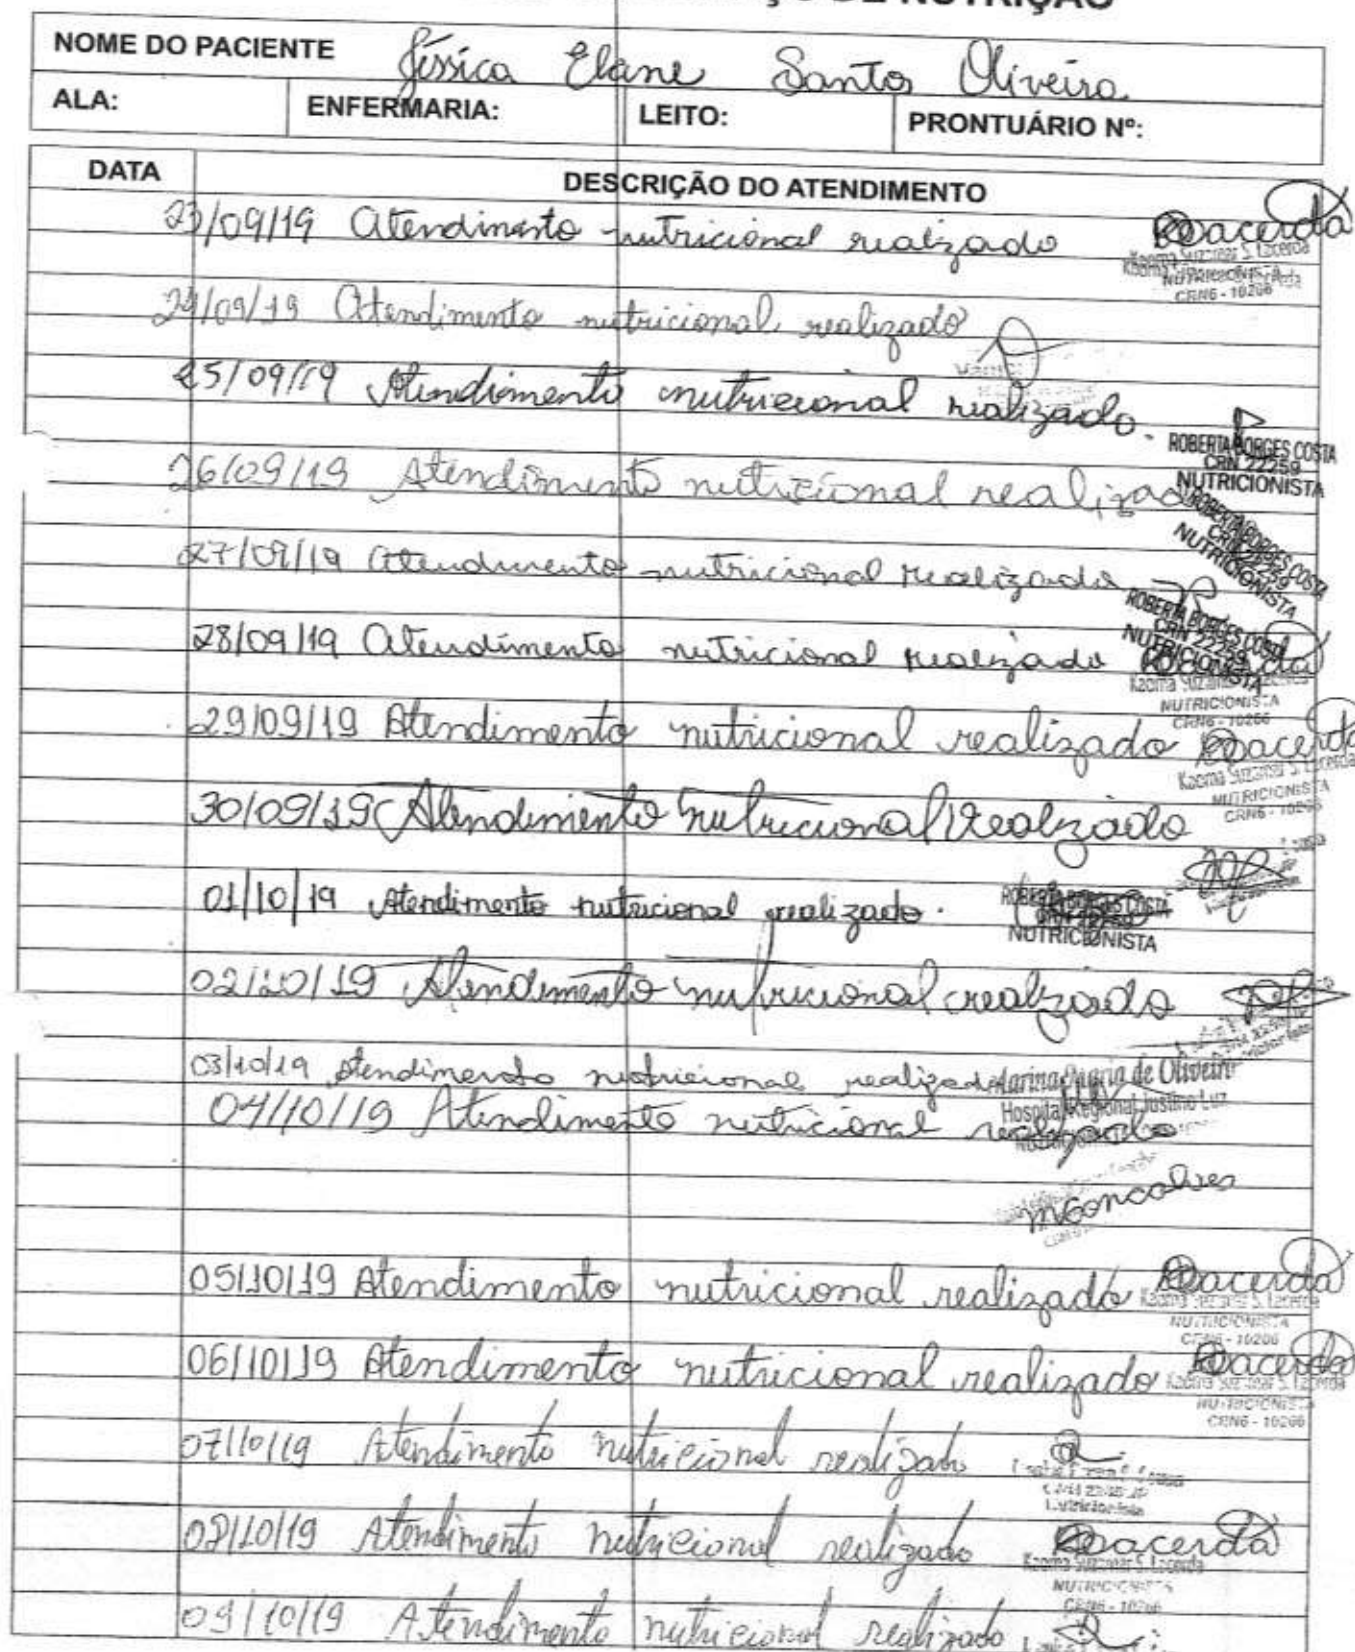 DE NUTRIÇÃO
NOME DO PACIENTE Jéssica Elane Santos Oliveira
ALA: ENFERMARIA: LEITO: PRONTUÁRIO Nº:
DATA DESCRIÇÃO DO ATENDIMENTO
23/09/19 Atendimento nutricional realizado
NUTRICIONISTA
CRN6 - 10266
24/09/19 Atendimento nutricional realizado
25/09/19 Atendimento nutricional realizado.
ROBERTA BORGES COSTA
CRN 22259
NUTRICIONISTA
26/09/19 Atendimento nutricional realizado
ROBERTA BORGES COSTA
CRN 22259
NUTRICIONISTA
27/09/19 Atendimento nutricional realizado
ROBERTA BORGES COSTA
CRN 22259
NUTRICIONISTA
28/09/19 Atendimento nutricional realizado Lacerda
NUTRICIONISTA
CRN6 - 10266
29/09/19 Atendimento nutricional realizado Lacerda
NUTRICIONISTA
CRN6 - 10266
30/09/19 Atendimento nutricional realizado
01/10/19 Atendimento nutricional realizado.
ROBERTA BORGES COSTA
CRN 22259
NUTRICIONISTA
02/10/19 Atendimento nutricional realizado
03/10/19 Atendimento nutricional realizado Maria de Oliveira
Hospital Regional Justino Luz
04/10/19 Atendimento nutricional realizado
MGoncalves
05/10/19 Atendimento nutricional realizado Lacerda
NUTRICIONISTA
CRN6 - 10266
06/10/19 Atendimento nutricional realizado Lacerda
NUTRICIONISTA
CRN6 - 10266
07/10/19 Atendimento nutricional realizado
08/10/19 Atendimento nutricional realizado Lacerda
NUTRICIONISTA
CRN6 - 10266
09/10/19 Atendimento nutricional realizado